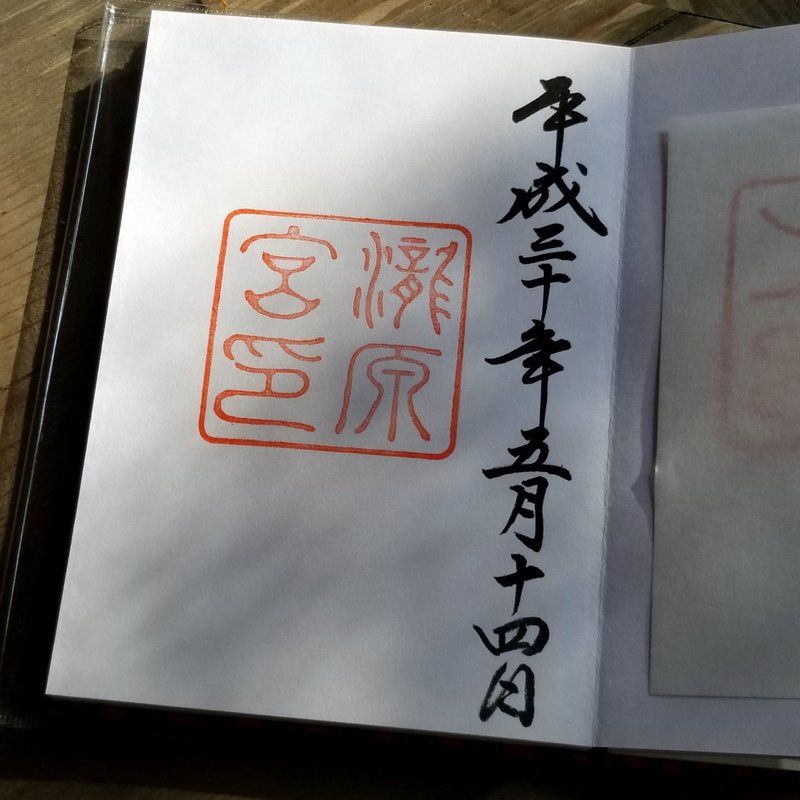 平成三十年五月十四日
瀧原
宮印